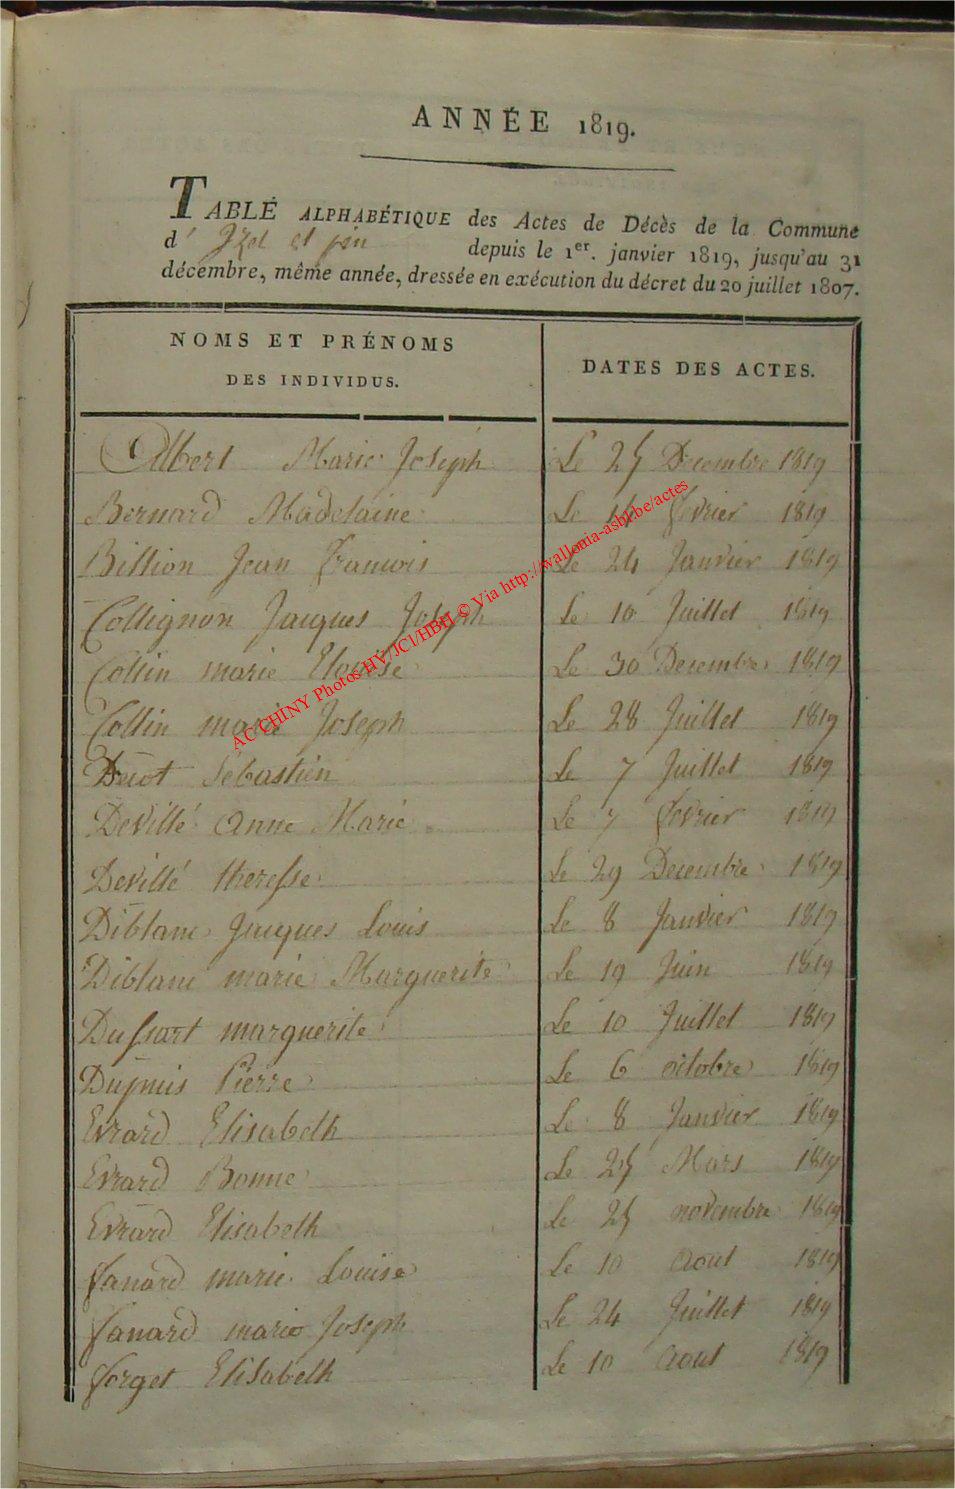 ANNÉE 1819.
TABLE ALPHABÉTIQUE des Actes de Décès de la Commune
d' Izel et pin depuis le 1er. janvier 1819, jusqu'au 31
décembre, même année, dressée en exécution du décret du 20 juillet 1807.
NOMS ET PRÉNOMS
DES INDIVIDUS.
DATES DES ACTES.
Albert Marie Joseph Le 25 Decembre 1819
Bernard Madelaine Le fevrier 1819
Billion Jean francois Le 24 Janvier 1819
Collignon Jacques Joseph Le 10 Juillet 1819
Collin marie Elouise Le 30 Decembre 1819
Collin marie Joseph Le 28 Juillet 1819
Sebastien Le 7 Juillet 1819
Devillé anne Marie Le 7 fevrier 1819
Devillé theresse Le 29 Decembre 1819
Diblanc Jacques Louis Le 8 Janvier 1819
Diblanc marie Marguerite Le 19 Juin 1819
Dussart marguerite Le 10 Juillet 1819
Dupuis Pierre Le 6 octobre 1819
Evrard Elisabeth Le 8 Janvier 1819
Evrard Bonne Le 25 Mars 1819
Evrard Elisabeth Le 25 novembre 1819
fanard marie Louise Le 10 aout 1819
fanard marie Joseph Le 24 Juillet 1819
forget Elisabeth Le 10 aout 1819
AC CHINY Photos HY/JCl/HBH © Via http://wallonia-asbl.be/actes